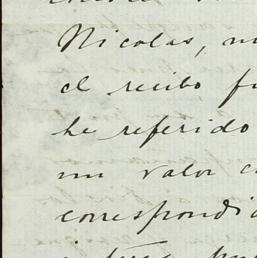 Nicolas, m
el recibo fu
he referido
un valor c
correspondi